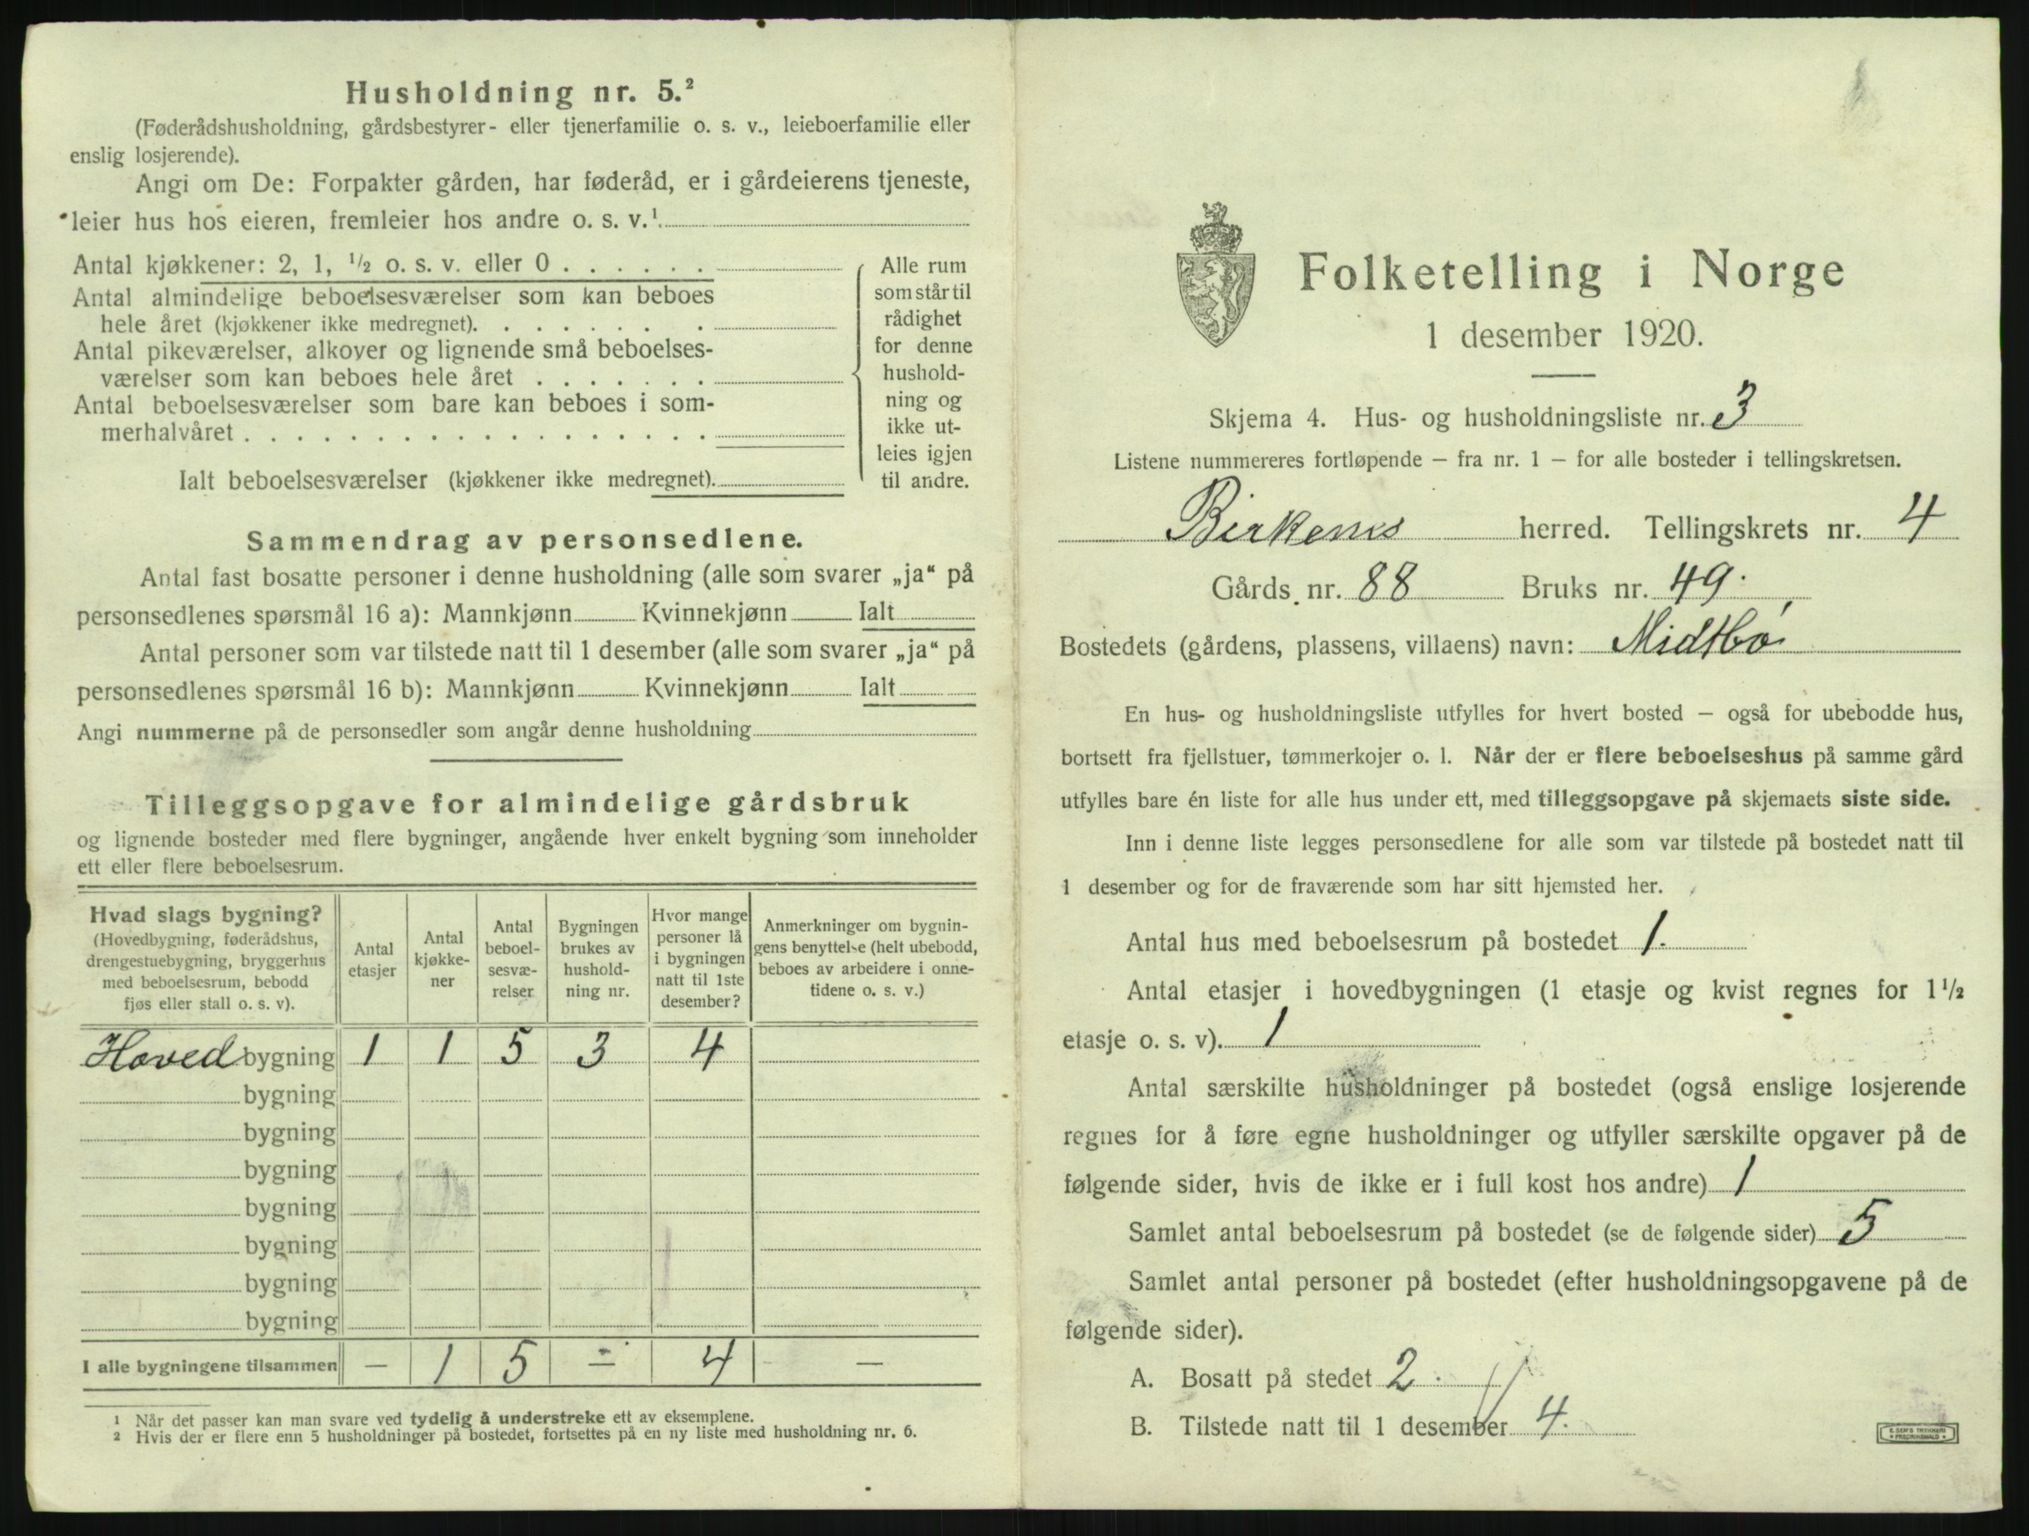 Husholdning nr. 5.²
(Føderådshusholdning, gårdsbestyrer- eller tjenerfamilie o. s. v., leieboerfamilie eller
enslig losjerende).
Angi om De: Forpakter gården, har føderåd, er i gårdeierens tjeneste,
leier hus hos eieren, fremleier hos andre o. s. v.¹
Antal kjøkkener: 2, 1, ½ o. s. v. eller 0 . . . . . .
Antal almindelige beboelsesværelser som kan beboes
hele året (kjøkkener ikke medregnet). . . . . . . .
Antal pikeværelser, alkover og lignende små beboelses-
værelser som kan beboes hele året . . . . . . .
Antal beboelsesværelser som bare kan beboes i som-
merhalvåret . . . . . . . . . . . . . . . . . .
Ialt beboelsesværelser (kjøkkener ikke medregnet).
Alle rum
som står til
rådighet
for denne
hushold-
ning og
ikke ut-
leies igjen
til andre.
Sammendrag av personsedlene.
Antal fast bosatte personer i denne husholdning (alle som svarer „ja“ på
personsedlenes spørsmål 16 a): Mannkjønn Kvinnekjønn Ialt
Antal personer som var tilstede natt til 1 desember (alle som svarer „ja“ på
personsedlenes spørsmål 16 b): Mannkjønn Kvinnekjønn Ialt
Angi nummerne på de personsedler som angår denne husholdning
Tilleggsopgave for almindelige gårdsbruk
og lignende bosteder med flere bygninger, angående hver enkelt bygning som inneholder
ett eller flere beboelsesrum.
Hvad slags bygning?
(Hovedbygning, føderådshus,
drengestuebygning, bryggerhus
med beboelsesrum, bebodd
fjøs eller stall o. s. v).
Antal
etasjer
Antal
kjøkke-
ner
Antal
beboel-
sesvæ-
relser
Bygningen
brukes av
hushold-
ning nr.
Hvor mange
personer lå
i bygningen
natt til 1ste
desember?
Anmerkninger om bygnin-
gens benyttelse (helt ubebodd,
beboes av arbeidere i onne-
tidene o. s. v.)
Hovedbygning 1 1 5 3 4
bygning
bygning
bygning
bygning
bygning
bygning
bygning
I alle bygningene tilsammen — 1 5 — 4 —
¹ Når det passer kan man svare ved tydelig å understreke ett av eksemplene.
² Hvis der er flere enn 5 husholdninger på bostedet, fortsettes på en ny liste med husholdning nr. 6.
Folketelling i Norge
1 desember 1920.
Skjema 4. Hus- og husholdningsliste nr. 3
Listene nummereres fortløpende — fra nr. 1 — for alle bosteder i tellingskretsen.
Birkenes herred. Tellingskrets nr. 4
Gårds nr. 88 Bruks nr. 49.
Bostedets (gårdens, plassens, villaens) navn: Midtbø
En hus- og husholdningsliste utfylles for hvert bosted — også for ubebodde hus,
bortsett fra fjellstuer, tømmerkojer o. l. Når der er flere beboelseshus på samme gård
utfylles bare én liste for alle hus under ett, med tilleggsopgave på skjemaets siste side.
Inn i denne liste legges personsedlene for alle som var tilstede på bostedet natt til
1 desember og for de fraværende som har sitt hjemsted her.
Antal hus med beboelsesrum på bostedet 1.
Antal etasjer i hovedbygningen (1 etasje og kvist regnes for 1½
etasje o. s. v). 1
Antal særskilte husholdninger på bostedet (også enslige losjerende
regnes for å føre egne husholdninger og utfyller særskilte opgaver på de
følgende sider, hvis de ikke er i full kost hos andre) 1
Samlet antal beboelsesrum på bostedet (se de følgende sider) 5
Samlet antal personer på bostedet (efter husholdningsopgavene på de
følgende sider).
A. Bosatt på stedet 2.
B. Tilstede natt til 1 desember 4.